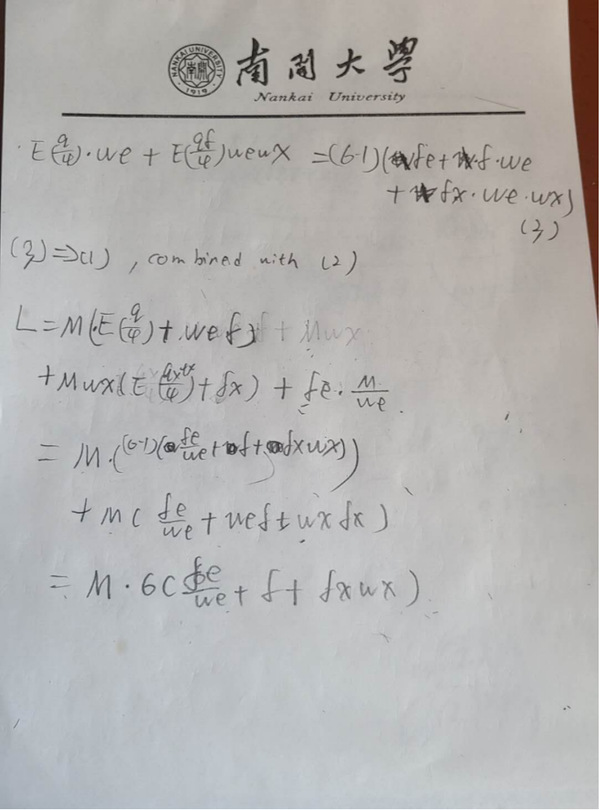 NANKAI UNIVERSITY
南開
1919
南開大學
Nankai University
E(q/φ)·we + E(qf/φ)wewx = (6-1)(fe + f·we
+ fx·we·wx)
(3)
(3)⇒(1), combined with (2)
L = M(·E(q/φ) + wef) + Mwx
+ Mwx(E(/φ) + fx) + fe·M/we
= M·((6-1)(fe/we + f + fxwx))
+ M(fe/we + wef + wxfx)
= M·6(fe/we + f + fxwx)